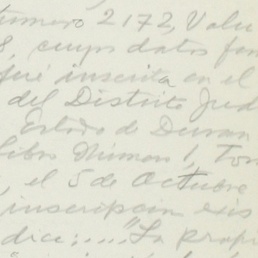 número 2172, Valu
8, cuyos datos fon
fué inscrita en el
del Distrito Jud
Estado de Duran
Libro Número 1, Tom
, el 5 de Octubre
inscripción exis
dice:...."La propi